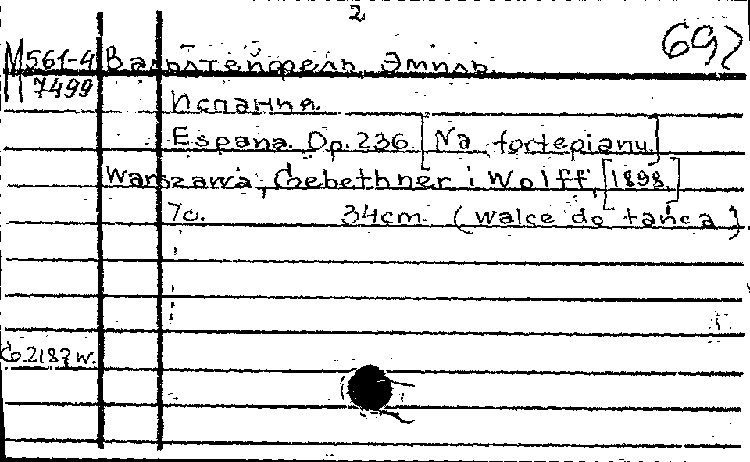 2
692
М561-4 Вальдтейфель, Эмиль.
7499
Испания.
Espana. Op. 236. [Na fortepianu]
Warszawa, Gebethner i Wolff, [1898]
7c. 34cm. (walce do tańca)
G.2187w.